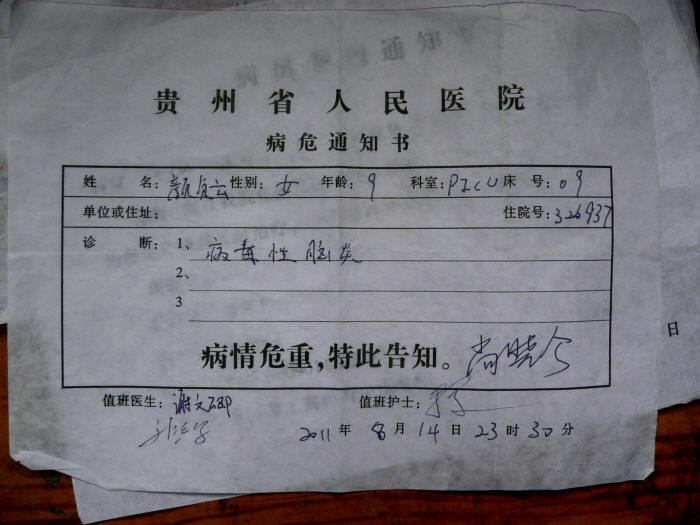 贵州省人民医院
病危通知书
姓 名: 颜 云 性别: 女 年龄: 9 科室: PICU 床 号: 09
单位或住址: 住院号: 326937
诊 断: 1、病毒性脑炎
2、
3
病情危重,特此告知。 尚晓兮
值班医生: 谢 值班护士:
2011 年 8 月 14 日 23 时 30 分
日